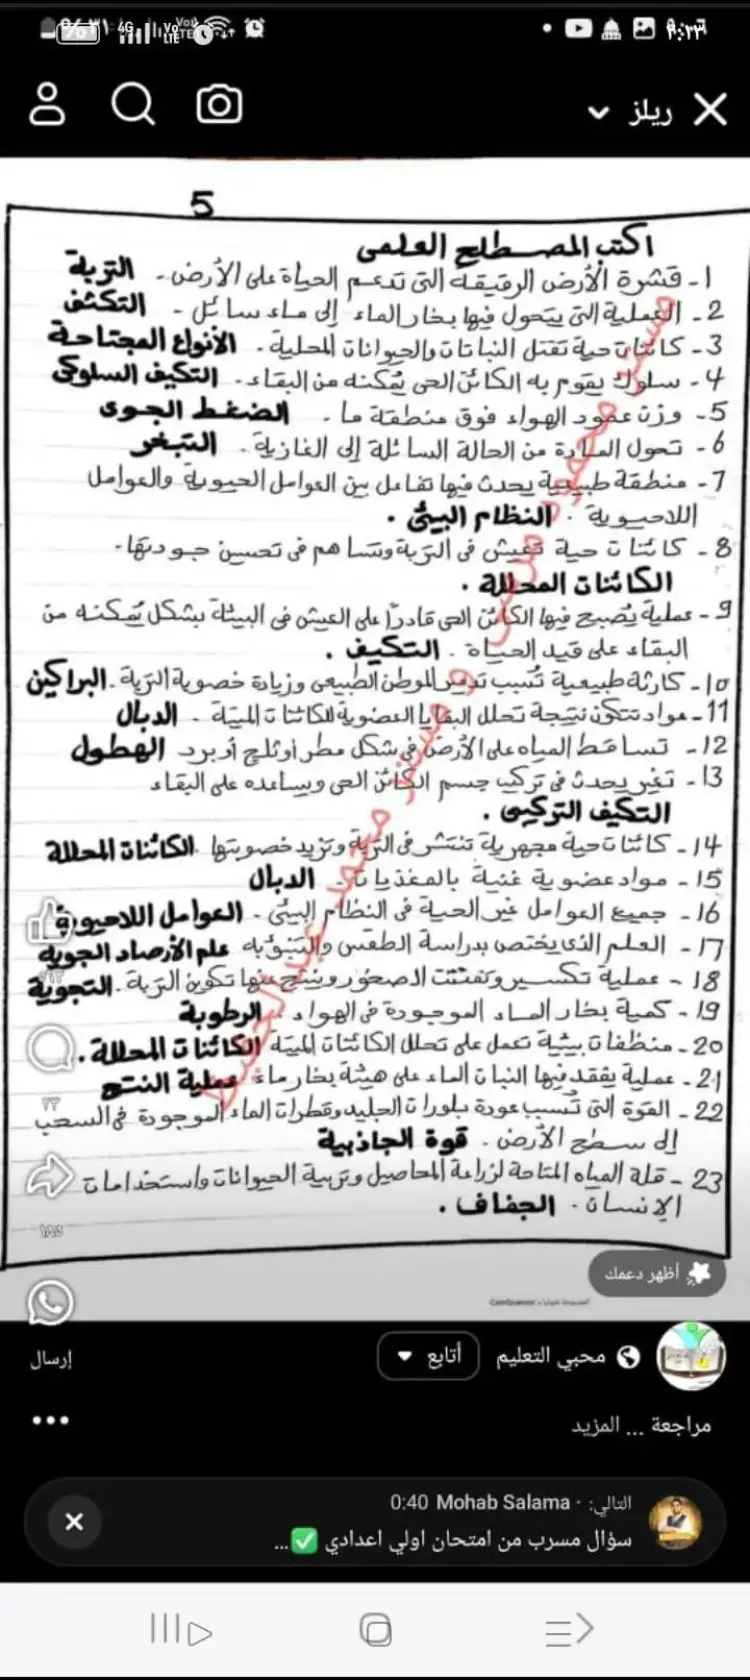 ٩:٢٣
4G
ريلز
5
اكتب المصطلح العلمى
1- قشرة الأرض الرقيقة التى تدعم الحياة على الأرض. التربة
2- العملية التى يتحول فيها بخار الماء إلى ماء سائل. التكثف
3- كائنات حية تقتل النباتات والحيوانات المحلية. الأنواع المجتاحة
4- سلوك يقوم به الكائن الحى يمكنه من البقاء. التكيف السلوكى
5- وزن عمود الهواء فوق منطقة ما. الضغط الجوى
6- تحول المادة من الحالة السائلة إلى الغازية. التبخر
7- منطقة طبيعية يحدث فيها تفاعل بين العوامل الحيوية والعوامل
اللاحيوية. النظام البيئى.
8- كائنات حية تعيش فى التربة وتساهم فى تحسين جودتها.
الكائنات المحللة.
9- عملية يصبح فيها الكائن الحى قادراً على العيش فى البيئة بشكل يمكنه من
البقاء على قيد الحياة. التكيف.
10- كارثة طبيعية تُسبب تدمير الموطن الطبيعى وزيادة خصوبة التربة. البراكين
11- مواد تتكون نتيجة تحلل البقايا العضوية للكائنات الميتة. الدبال
12- تساقط المياه على الأرض فى شكل مطر أو ثلج أو برد الهطول
13- تغير يحدث فى تركيب جسم الكائن الحى ويساعده على البقاء
التكيف التركيبى.
14- كائنات حية مجهرية تنتشر فى التربة وتزيد خصوبتها. الكائنات المحللة
15- مواد عضوية غنية بالمغذيات. الدبال
16- جميع العوامل غير الحية فى النظام البيئى. العوامل اللاحيوية
17- العلم الذى يختص بدراسة الطقس والتنبؤ به علم الأرصاد الجوية
18- عملية تكسير وتفتت الصخور وينتج عنها تكوين التربة. التجوية
19- كمية بخار الماء الموجودة فى الهواء. الرطوبة
20- منظفات بيئية تعمل على تحلل الكائنات الميتة الكائنات المحللة.
21- عملية يفقد فيها النبات الماء على هيئة بخار ماء عملية النتح
22- القوة التى تُسبب عودة بلورات الجليد وقطرات الماء الموجودة فى السحب
إلى سطح الأرض. قوة الجاذبية
23- قلة المياه المتاحة لزراعة المحاصيل وتربية الحيوانات واستخدامات
الإنسان. الجفاف.
١٨٥
أظهر دعمك
CamScanner
محبي التعليم
أتابع
إرسال
مراجعة ... المزيد
التالي: · Mohab Salama 0:40
سؤال مسرب من امتحان اولي اعدادي ✅...